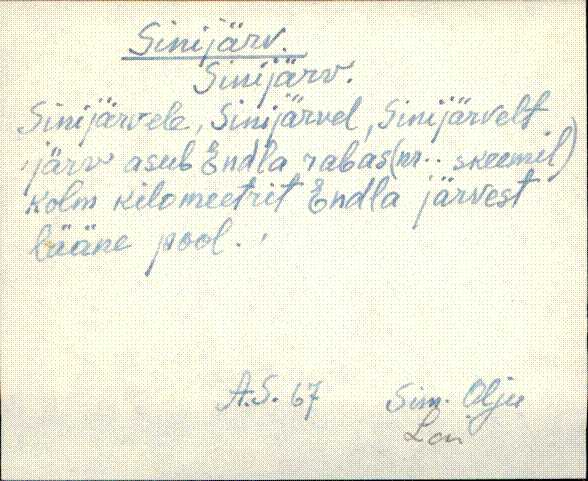 Sinijärv.
Sinijärv.
Sinijärvele, Sinijärvel, Sinijärvelt
järv asub Endla rabas (nr.. skeemil)
kolm kilomeetrit Endla järvest
lääne pool.
A.S. 67 Sim. Olju
Lai